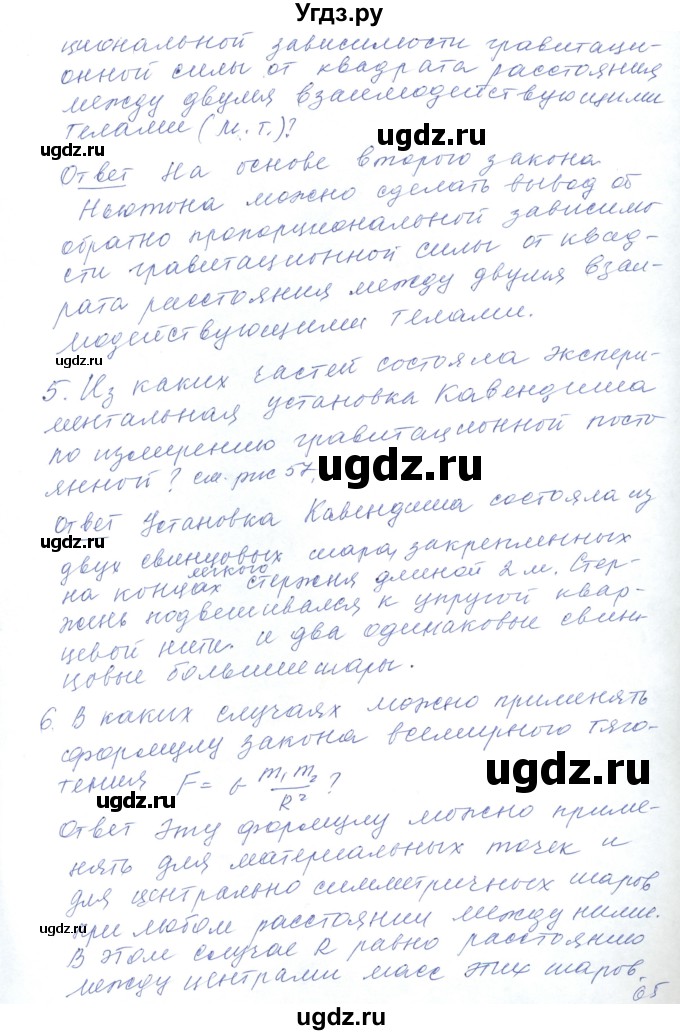 Угдз.ру
циональной зависимости гравитаци-
онной силы от квадрата расстояния
между двумя взаимодействующими
телами (м.т.)?
ugdz.ru
ugdz.ru
Ответ На основе второго закона
Ньютона можно сделать вывод об
обратно пропорциональной зависимо
сти гравитационной силы от квад-
рата расстояния между двумя взаи-
модействующими телами.
ugdz.ru
ugdz.ru
5. Из каких частей состояла экспери-
ментальная установка Кавендиша
по измерению гравитационной посто
янной? см. рис 57.
ugdz.ru
Ответ Установка Кавендиша состояла из
ugdz.ru
двух свинцовых шара, закрепленных
на концах легкого стержня длиной 2 м. Стер-
жень подвешивался к упругой квар-
цевой нити. и два одинаковые свин-
цовые большие шары.
ugdz.ru
6. В каких случаях можно применять
формулу закона всемирного тяго-
тения F = G m₁m₂/R² ?
ugdz.ru
ugdz.ru
Ответ Эту формулу можно приме-
нять для материальных точек и
для центрально симметричных шаров
при любом расстоянии между ними.
В этом случае R равно расстоянию
между центрами масс этих шаров.
ugdz.ru
ugdz.ru
65